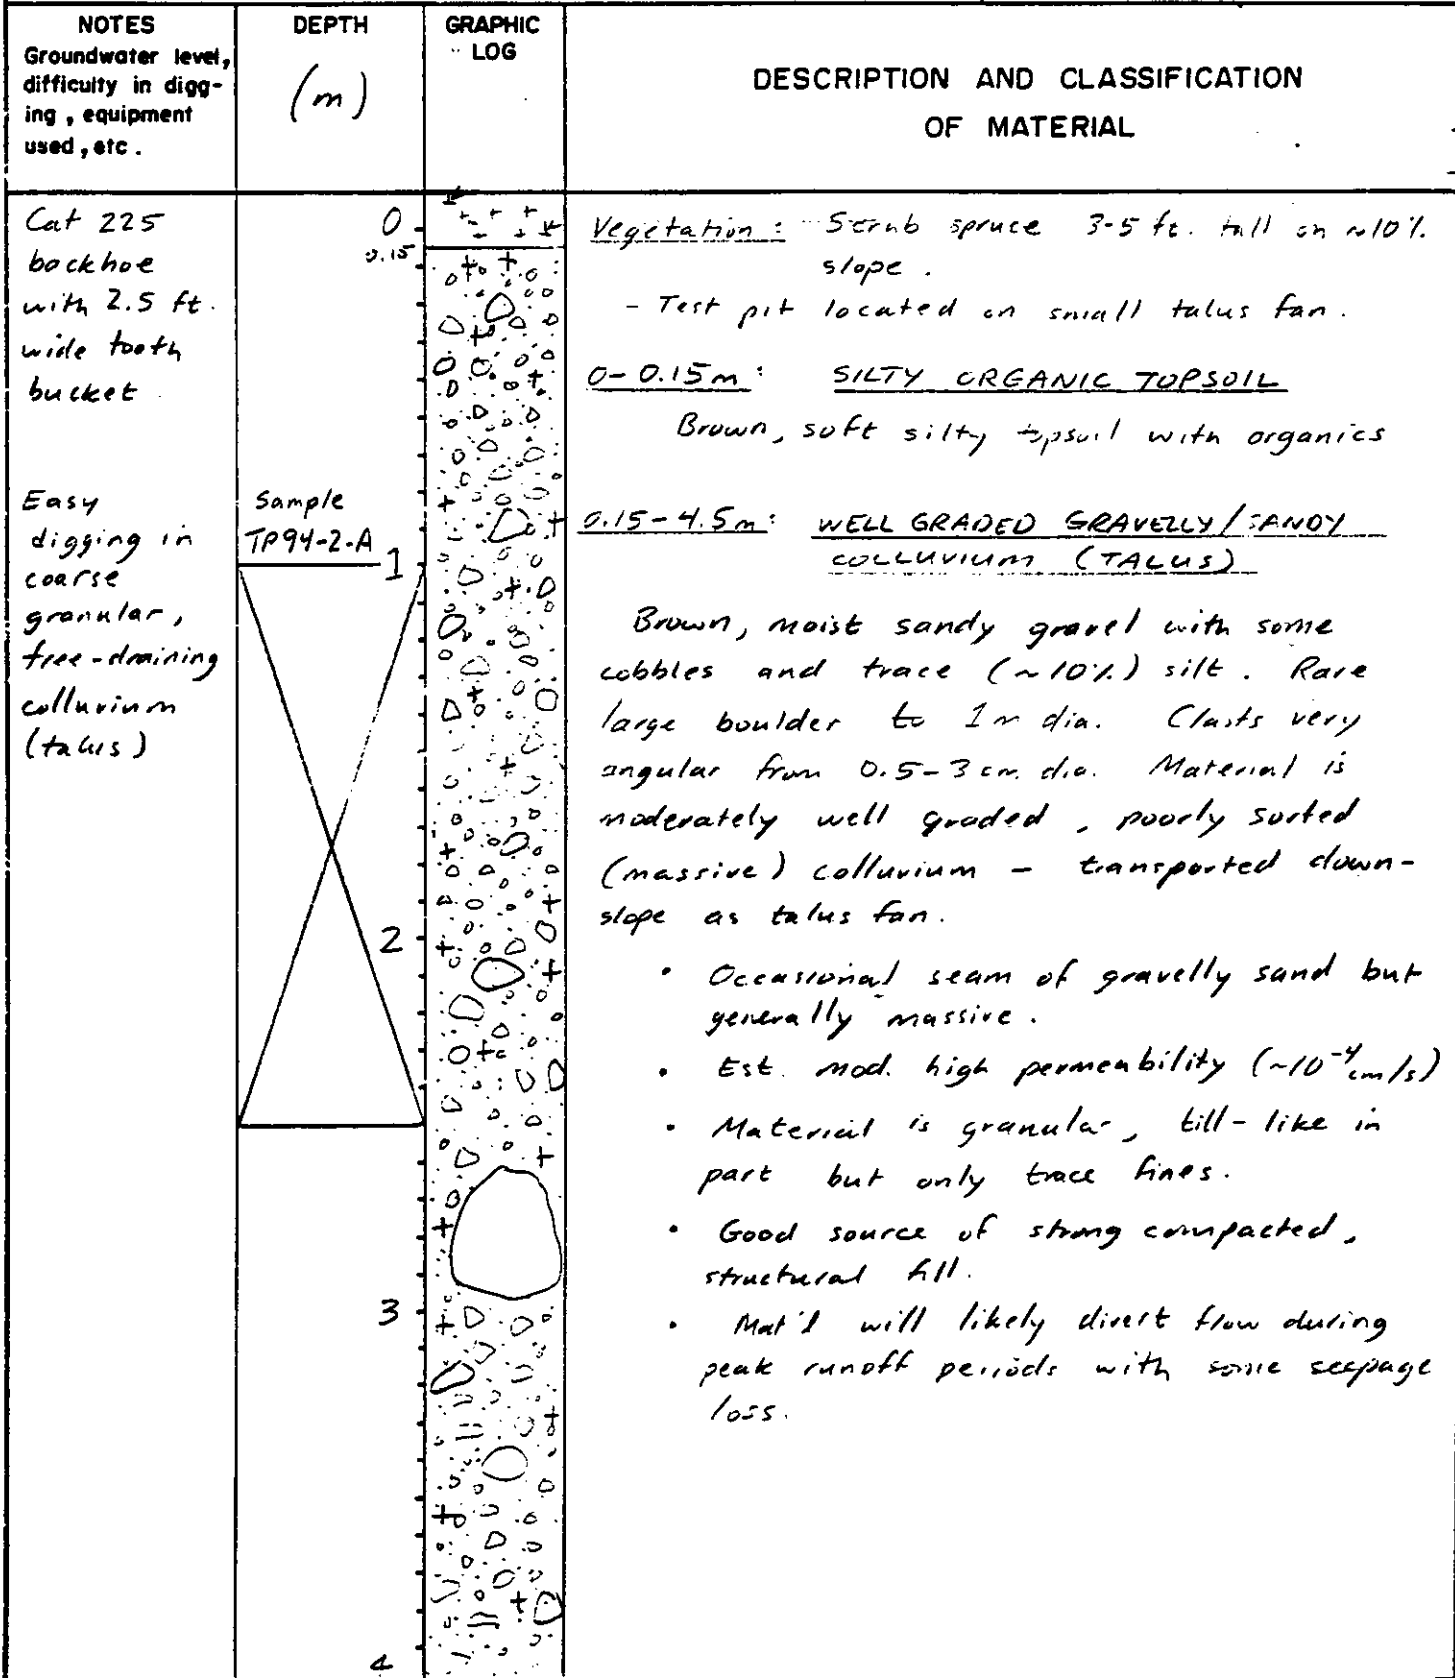 NOTES
Groundwater level,
difficulty in digg-
ing, equipment
used, etc.
DEPTH
(m)
GRAPHIC
LOG
DESCRIPTION AND CLASSIFICATION
OF MATERIAL
Cat 225
backhoe
with 2.5 ft.
wide tooth
bucket
Easy
digging in
coarse
granular,
free-draining
colluvium
(talus)
0
0.15
Sample
TP94-2-A
1
2
3
4
Vegetation: Scrub spruce 3-5 ft. tall on ~10%
slope.
- Test pit located on small talus fan.
0-0.15m: SILTY ORGANIC TOPSOIL
Brown, soft silty topsoil with organics
0.15-4.5m: WELL GRADED GRAVELLY/SANDY
COLLUVIUM (TALUS)
Brown, moist sandy gravel with some
cobbles and trace (~10%) silt. Rare
large boulder to 1m dia. Clasts very
angular from 0.5-3 cm. dia. Material is
moderately well graded, poorly sorted
(massive) colluvium - transported down-
slope as talus fan.
• Occasional seam of gravelly sand but
generally massive.
• Est. mod. high permeability (~10⁻⁴ cm/s)
• Material is granular, till-like in
part but only trace fines.
• Good source of strong compacted,
structural fill.
• Mat'l will likely divert flow during
peak runoff periods with some seepage
loss.